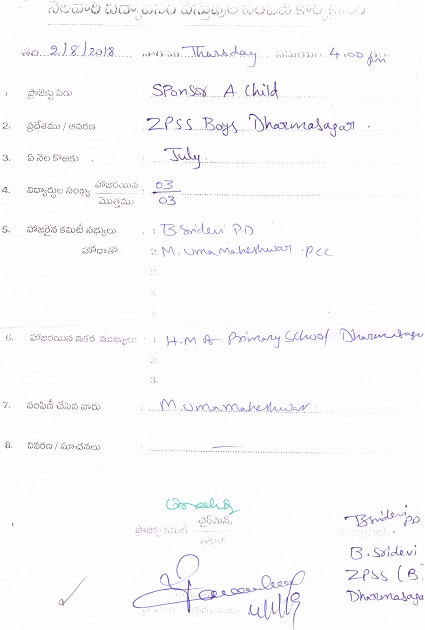 నెలవారీ విద్యా పరమైన వస్తువుల పంపిణీ కార్యక్రమం
తేది 2/8/2018 వారము Thursday సమయం 4.00 pm
1. ప్రాజెక్టు పేరు Sponsor A Child
2. ప్రదేశము / ఆవరణ ZPSS Boys Dharmasagar .
3. ఏ నెల కొఱకు : July
4. విద్యార్థుల సంఖ్య హాజరయిన / మొత్తము : 03 / 03
5. హాజరైన కమిటీ సభ్యులు : 1. B Sridevi P.D
హోదాతో 2. M. Uma Maheshwar . PCC
3.
4.
5.
6. హాజరయిన ఇతర ముఖ్యులు : 1. H.M Primary School Dharmasagar
2.
3.
7. పంపిణీ చేసిన వారు : M. Uma Maheshwar.
8. వివరణ / సూచనలు : —
చైర్‌మెన్,
ప్రాజెక్టు కమిటీ
BSridevi PD
B. Sridevi
ZPSS (B)
Dharmasaga